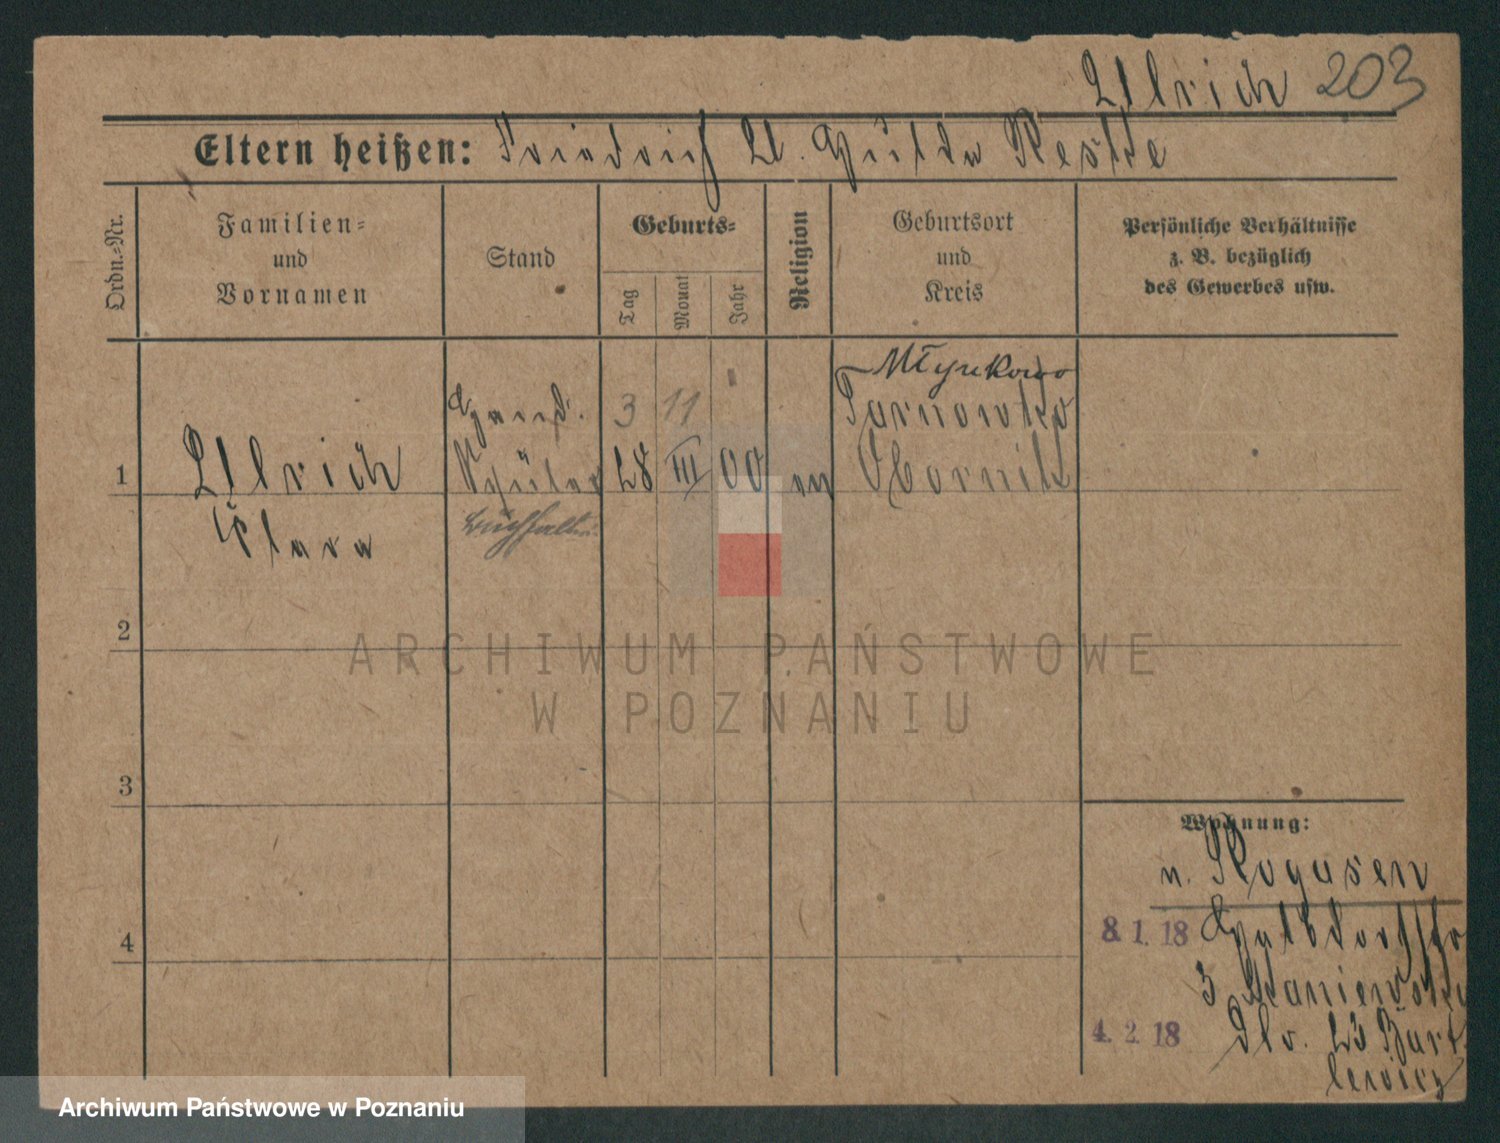 Ullrich 203
Eltern heißen: Friedrich U. Hulda Reske
Ordn.-Nr.
Familien-
und
Vornamen
Stand
Geburts-
Tag
Monat
Jahr
Religion
Geburtsort
und
Kreis
Persönliche Verhältnisse
z. B. bezüglich
des Gewerbes usw.
1
Ullrich
Clara
Schüler
3 11
28 III 00
ev
Młynkowo
Tarnowko
Obornik
2
3
4
Wohnung:
n. Rogasen
8. 1. 18
3
4. 2. 18
23
ARCHIWUM PAŃSTWOWE
W POZNANIU
Archiwum Państwowe w Poznaniu